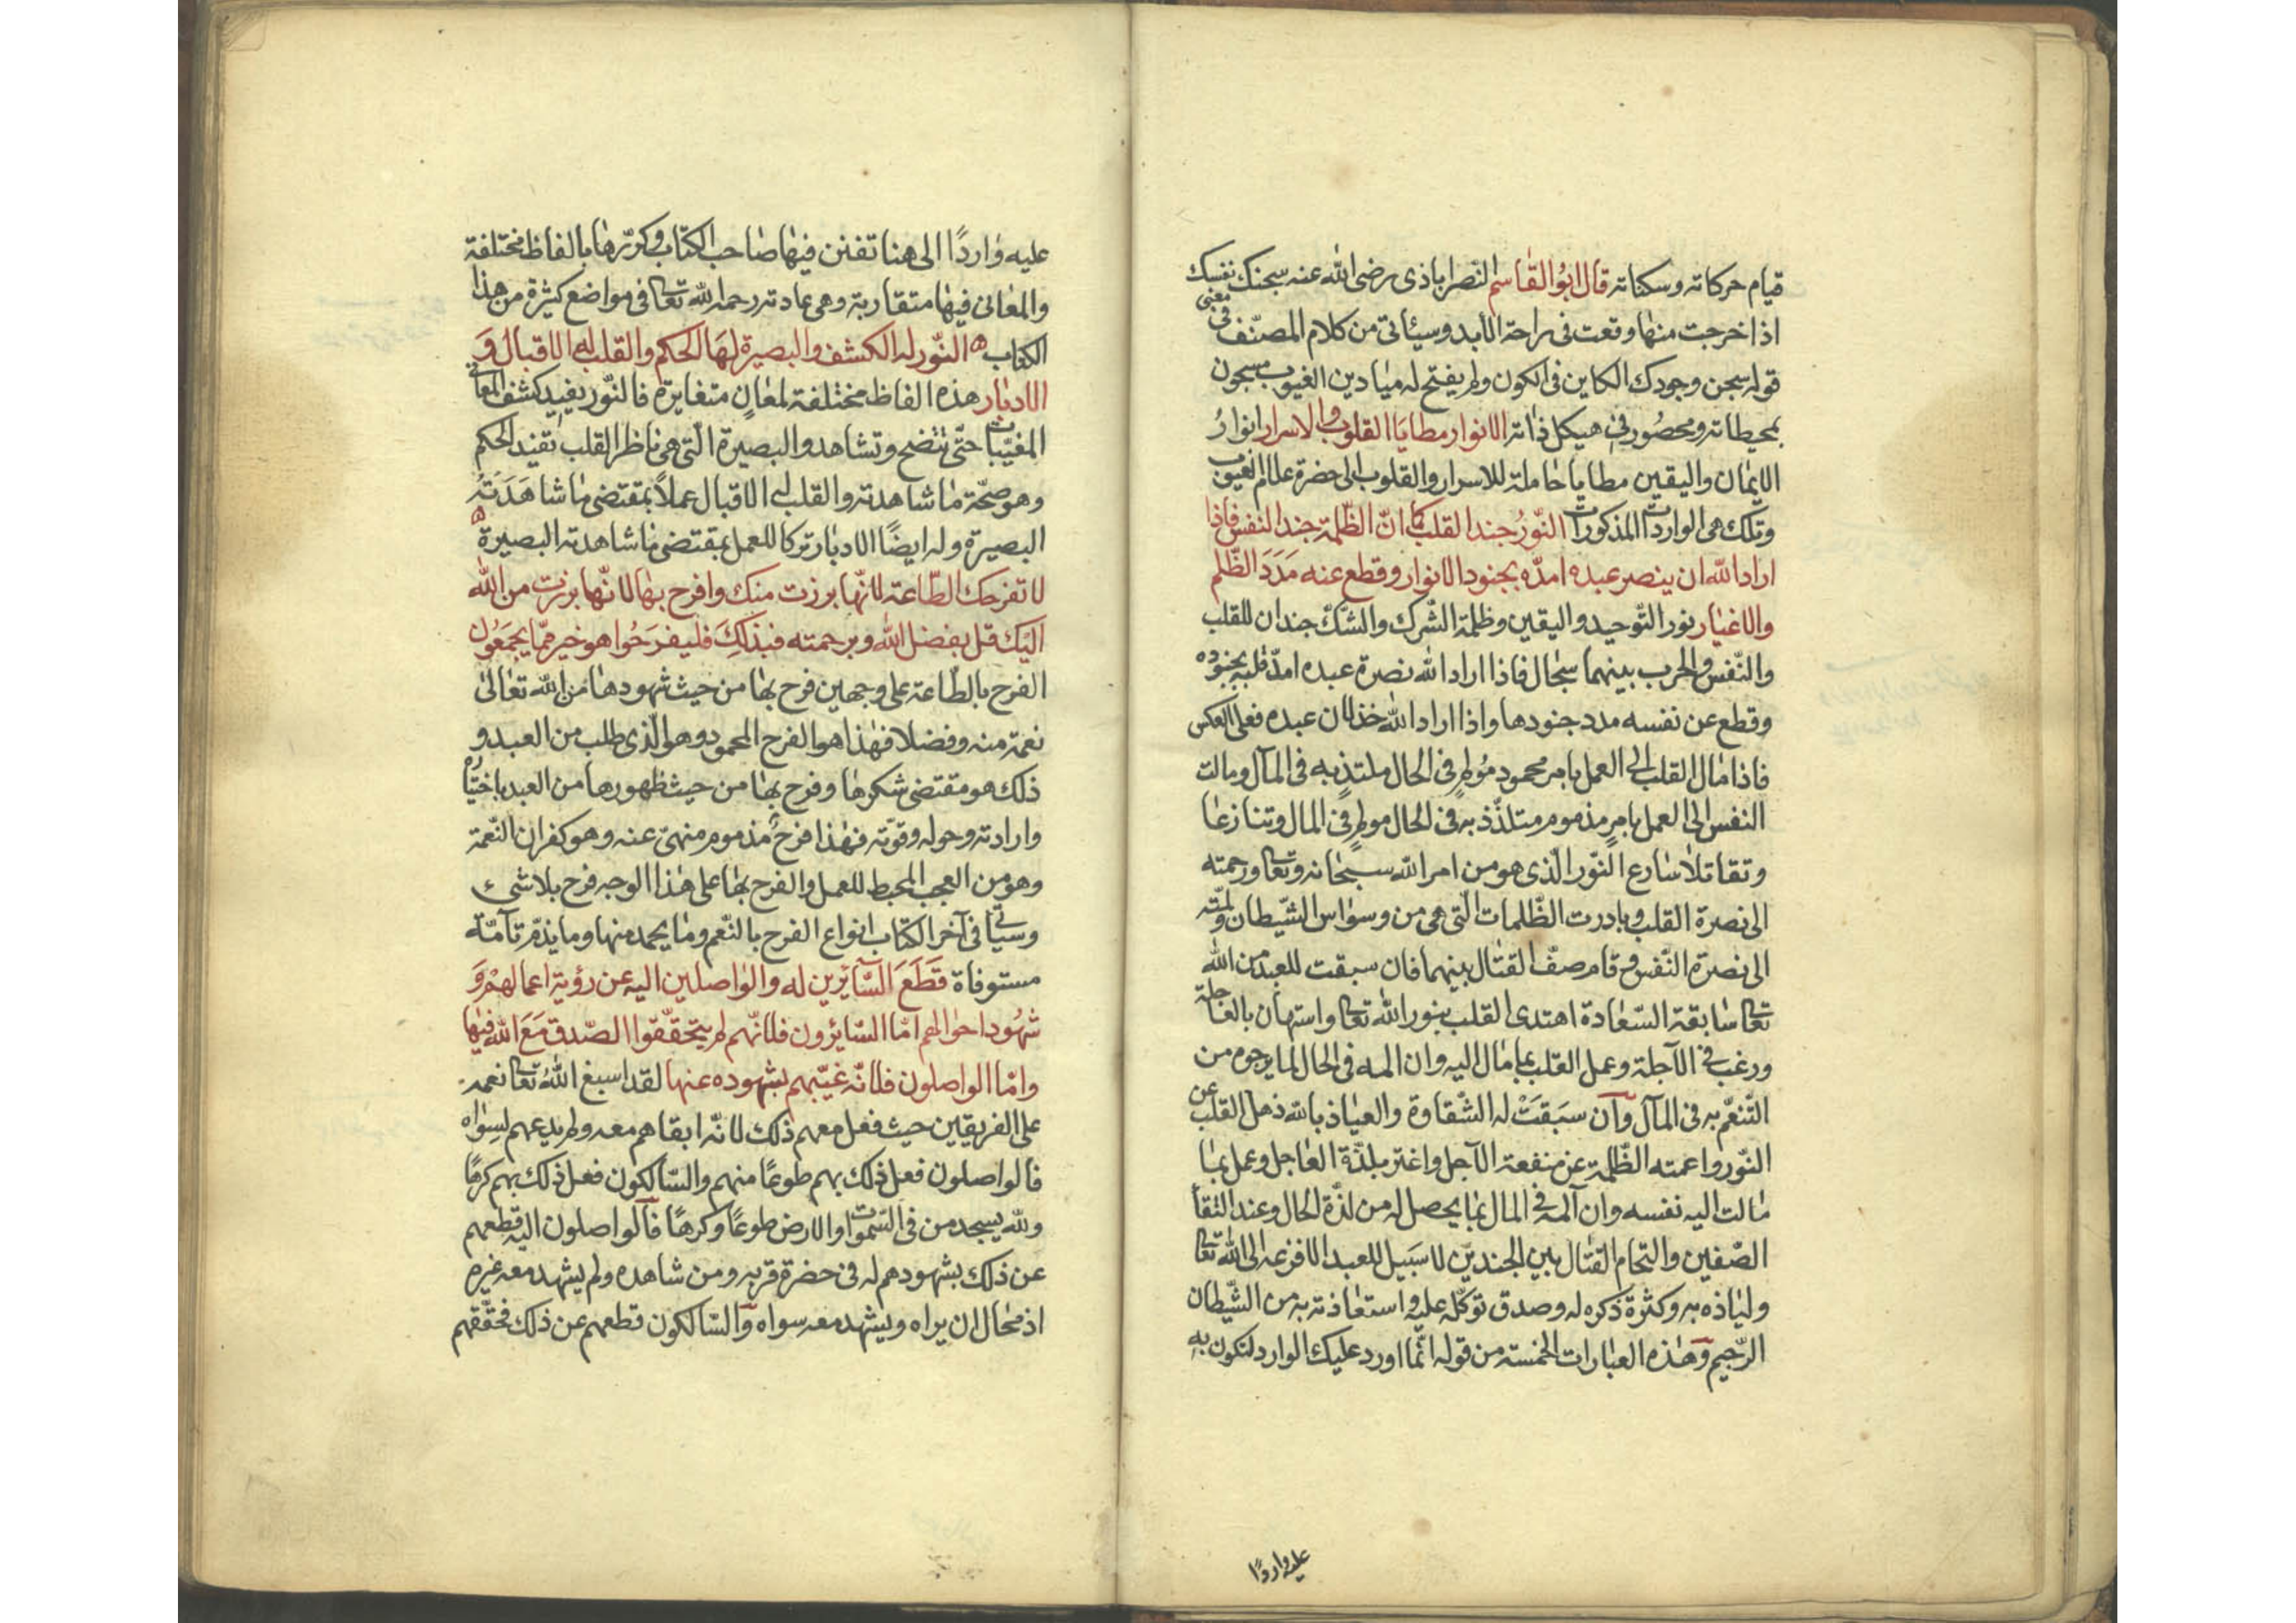 قيام حركاته وسكناته قال ابو القاسم النصراباذى رضى الله عنه سجنك نفسك
اذا خرجت منها وقعت فى راحة الابد وسيئاتى من كلام المصنّف فى معنى
قوله سجن وجودك الكاين فى الكون ولم يفتح له ميادين الغيوب مسجون
بمحيطاته ومحصور فى هيكل ذاته الانوار مطايا القلوب والاسرار انوار
الايمان واليقين مطايا حاملة للاسرار والقلوب الى حضرة علام الغيوب
وتلك هى الواردات المذكورات النّور جند القلب كما انّ الظّلمة جند النفس فاذا
اراد الله ان ينصر عبده امدّه بجنود الانوار وقطع عنه مَدَدَ الظّلم
والاغيار نور التّوحيد واليقين وظلمة الشّرك والشّكّ جندان للقلب
والنّفس والحرب بينهما سجال فاذا اراد الله نصرة عبده امدّ قلبه بجنوده
وقطع عن نفسه مدد جنودها واذا اراد الله خذلان عبده فعلى العكس
فاذا مال القلب الى العمل بامر محمود مُولم فى الحال ملتذّ به فى المآل ومالت
النفس الى العمل بامر مذموم متلذّذ به فى الحال مولم فى المال وتنازعا
وتقاتلا سارع النّور الّذى هو من امر الله سبحانه وتعا ورحمته
الى نصرة القلب وبادرت الظّلمات الّتى هى من وسواس الشّيطان ولمّته
الى نصرة النّفس وقام صفّ القتال بينهما فان سبقت للعبد من الله
تعا سابقة السّعادة اهتدى القلب بنور الله تعا واستهان بالعاجلة
ورغب فى الآجلة وعمل القلب بما مال اليه وان المه فى الحال لما يرجوه من
التّنعّم به فى المآل وان سَبقَتْ له الشّقاوة والعياذ بالله ذهل القلب عن
النّور واعمته الظّلمة عن منفعة الآجل واغتر بلذّة العاجل وعمل بما
مالت اليه نفسه وان آلمه فى المال بما يحصل له من لذّة الحال وعند التقا
الصّفين والتحام القتال بين الجندين لا سَبيل للعبد الا فزعه الى الله تعا
ولياذه به وكثرة ذكره له وصدق توكّله عليه واستعاذته به من الشّيطان
الرّجيم وهذه العبارات الخمسة من قوله انّما اورد عليك الوارد لتكون به
عليه واردًا
عليه واردًا الى هنا تفنن فيها صاحب الكتاب وكرّرها بالفاظ مختلفة
والمعانى فيها متقاربة وهى عادته رحمه الله تعا فى مواضع كثيرة من هذا
الكتاب ه النّور له الكشف والبصيرة لها الحكم والقلب له الاقبال وَ
الادبار هذه الفاظ مختلفة لمعانٍ متغايرة فالنّور يفيد كشف المعانى
المغيّبات حتّى تتّضح وتشاهد والبصيرة الّتى هى ناظر القلب تفيد الحكم
وهو صحّة ما شاهدته والقلب له الاقبال عملاً بمقتضى ما شاهَدَتهُ
البصيرة وله ايضًا الادبار تركا للعمل بمقتضى ما شاهدته البصيرة ه
لا تفرحك الطّاعة لانّها برزت منك وافرح بها لانّها برزت من الله
اليك قل بفضل الله وبرحمته فبذلكَ فليفرَحُوا هو خير ممّا يجمَعُون
الفرح بالطّاعة على وجهين فرح بها من حيث شهودها من الله تعالى
نعمة منه وفضلا فهذا هو الفرح المحمود وهو الّذى طلب من العبد و
ذلك هو مقتضى شكرها وفرح بها من حيث ظهورها من العبد باختياره
وارادته وحوله وقوّته فهذا فرح مذموم منهىّ عنه وهو كفران النّعمة
وهو من العجب المحبط للعمل والفرح بها على هذا الوجه فرح بلا شىء
وسيأتى فى آخر الكتاب انواع الفرح بالنّعم وما يحمد منها وما يذمّ تآمّة
مستوفاة قَطَعَ السّآئرين له والواصلين اليه عن رؤية اعمالهمْ وَ
شهُود احوالهم امّا السّايرون فلانّهم لم يتحقّقوا الصّدق مَعَ الله فيها
وامّا الواصلون فلانّه غيّبهم بشهوده عنها لقد اسبغ اللهُ تعا نعمه
على الفريقين حيث فعل معهم ذلك لانّه ابقاهم معه ولم يدعهم لسِواه
فالواصلون فعل ذلك بهم طوعًا منهم والسّالكون فعل ذلك بهم كرهًا
ولله يسجد من فى السّموات والارض طوعًا وكرهًا فالواصلون اليه قطعهم
عن ذلك بشهودهم له فى حضرة قربه ومن شاهده ولم يشهد معه غيره
اذ محال ان يراه ويشهد معه سواه والسّالكون قطعهم عن ذلك فحقّقهم